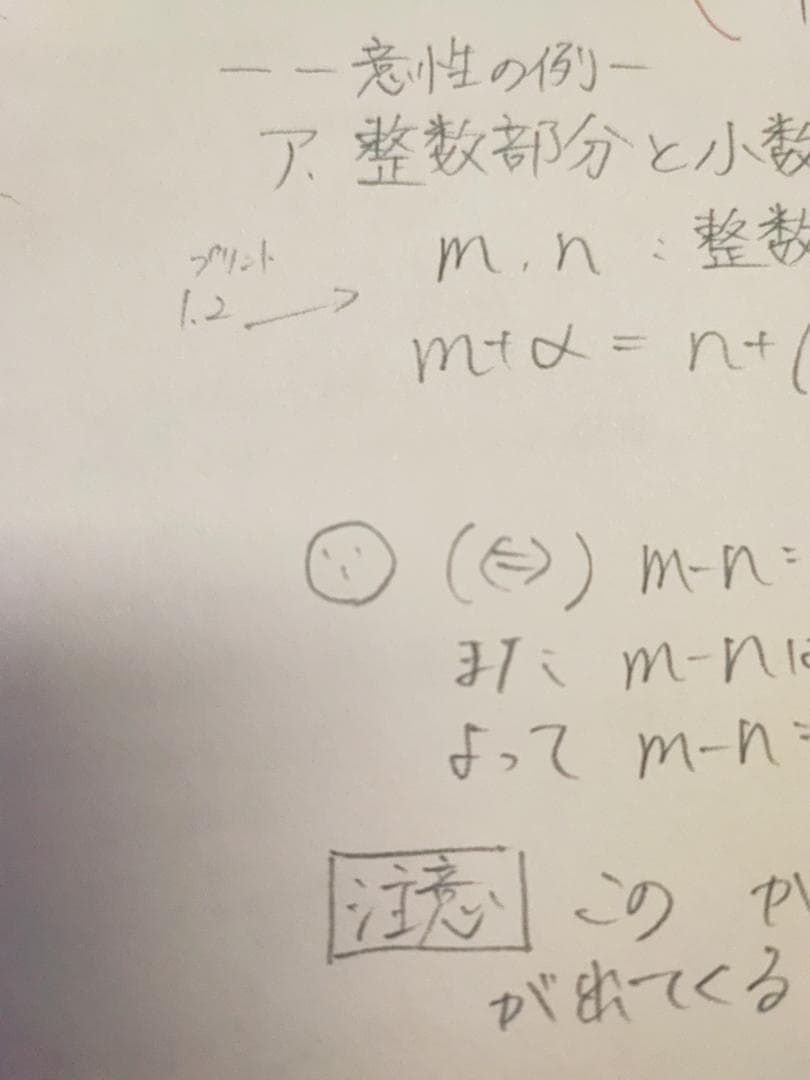 ー 一意性の例 ー
ア. 整数部分と小数
m, n : 整数
プリント
1.2 →
m+α = n+(
∵ (⇔) m-n=
また m-nは
よって m-n=
注意 この
が出てくる